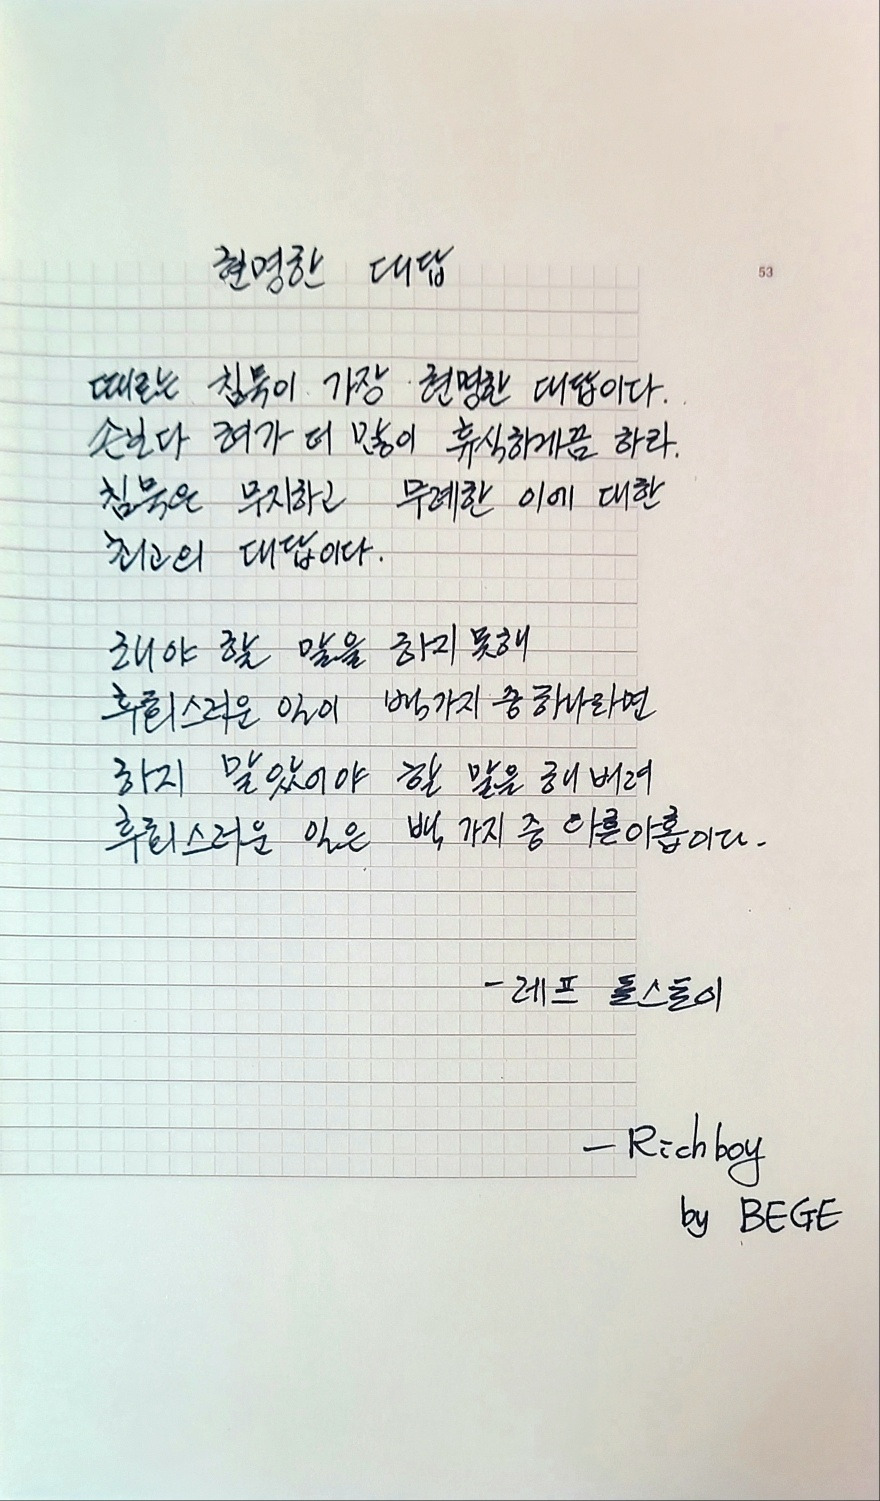 현명한 대답
53
때로는 침묵이 가장 현명한 대답이다.
손보다 혀가 더 많이 휴식하게끔 하라.
침묵은 무지하고 무례한 이에 대한
최고의 대답이다.
해야 할 말을 하지 못해
후회스러운 일이 백가지 중 하나라면
하지 말았어야 할 말을 해 버려
후회스러운 일은 백 가지 중 아흔아홉이다.
- 레프 톨스토이
- Richboy
by BEGE